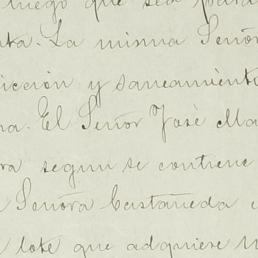 luego que sea
La misma Señor
dicción y saneamiento
El Señor José Ma
segun se contiene
Señora Castañeda
lote que adquiere